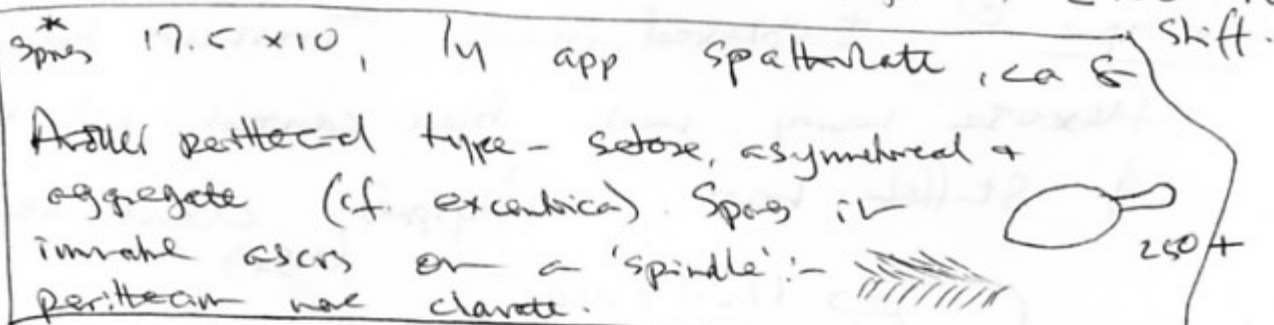 shift.
* spores 17.5 x 10, 1y app spathulate, ca 8
Another perithecial type - setose, asymmetrical +
aggregate (cf. excentrica) Spores in
immature ascus on a 'spindle' :-
250 +
perithecium more clavate.